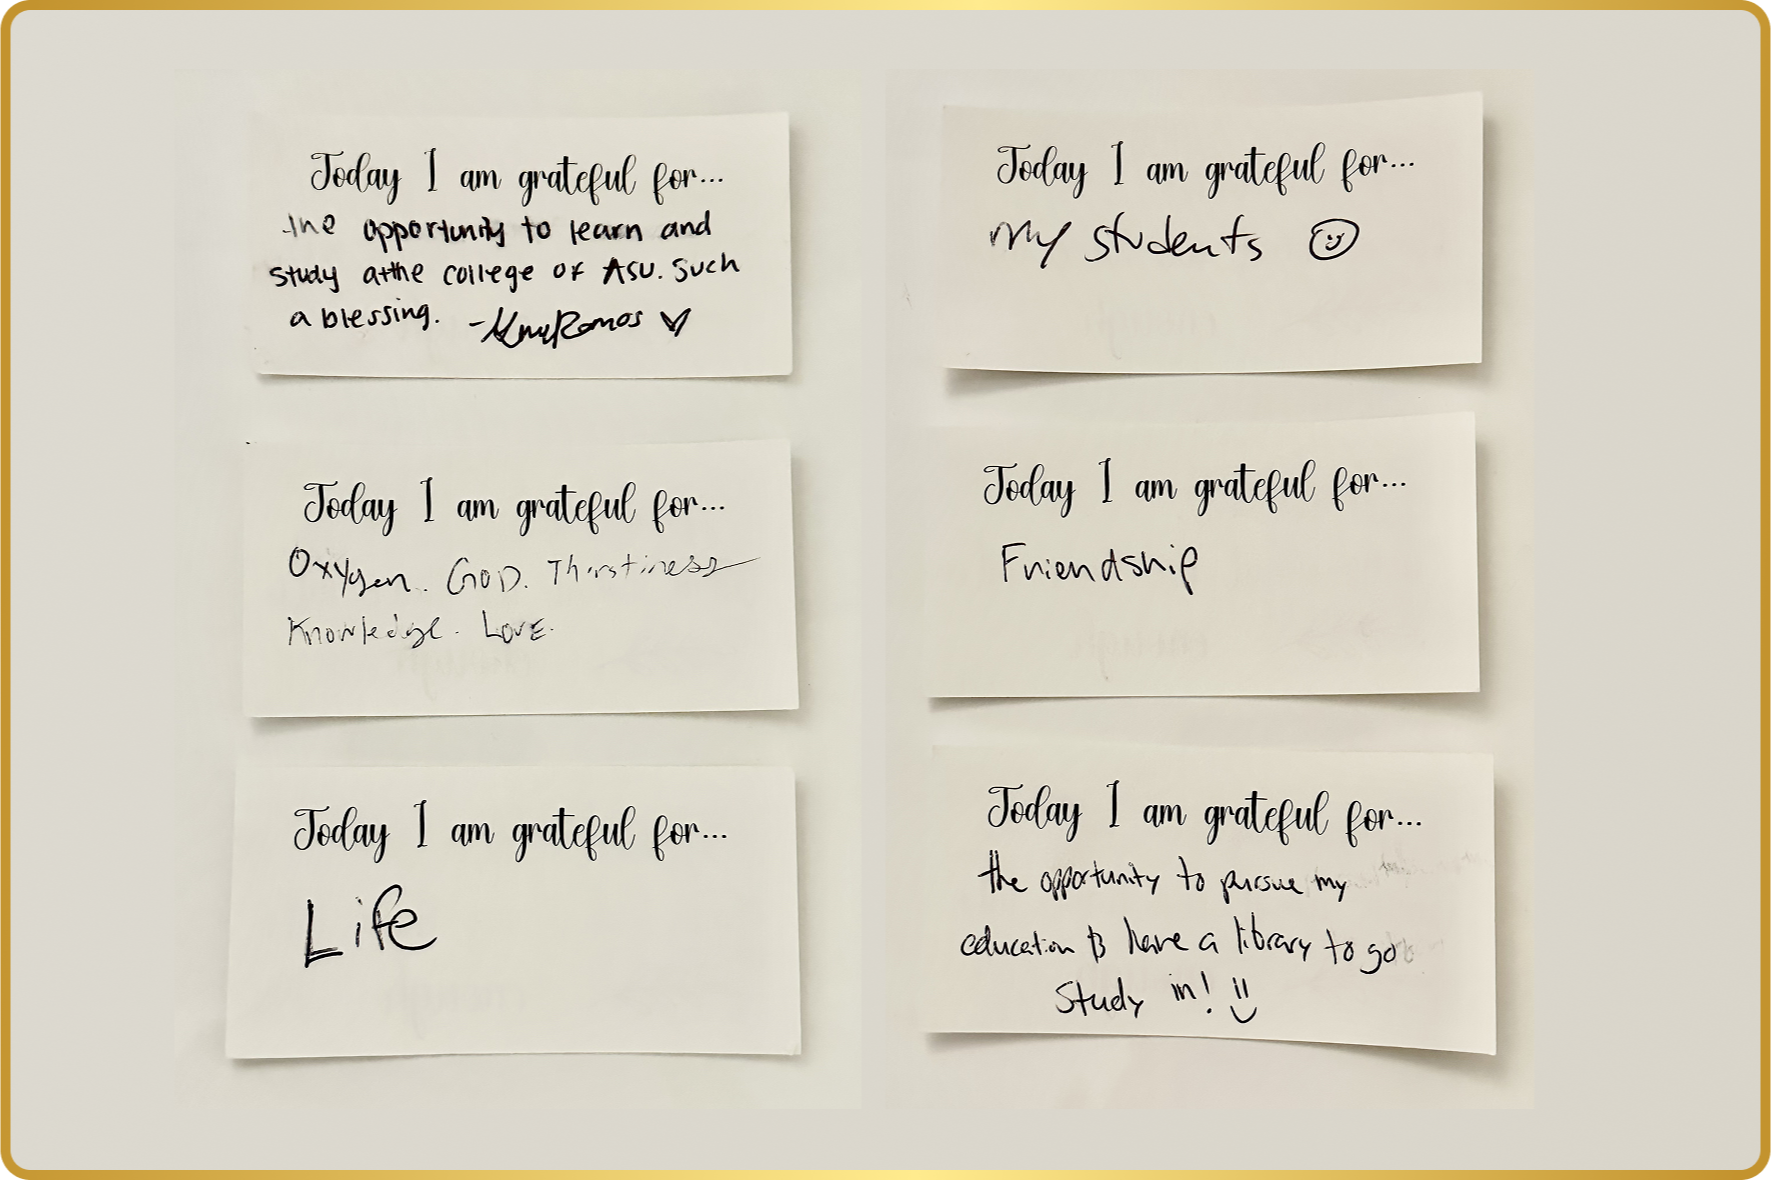 Today I am grateful for...
the opportunity to learn and
study at the college of ASU. Such
a blessing. - Ramos
Today I am grateful for...
Oxygen. GOD. Thirstiness
Knowledge. Love.
Today I am grateful for...
Life
Today I am grateful for...
my students
Today I am grateful for...
Friendship
Today I am grateful for...
the opportunity to pursue my
education & have a library to go
study in!